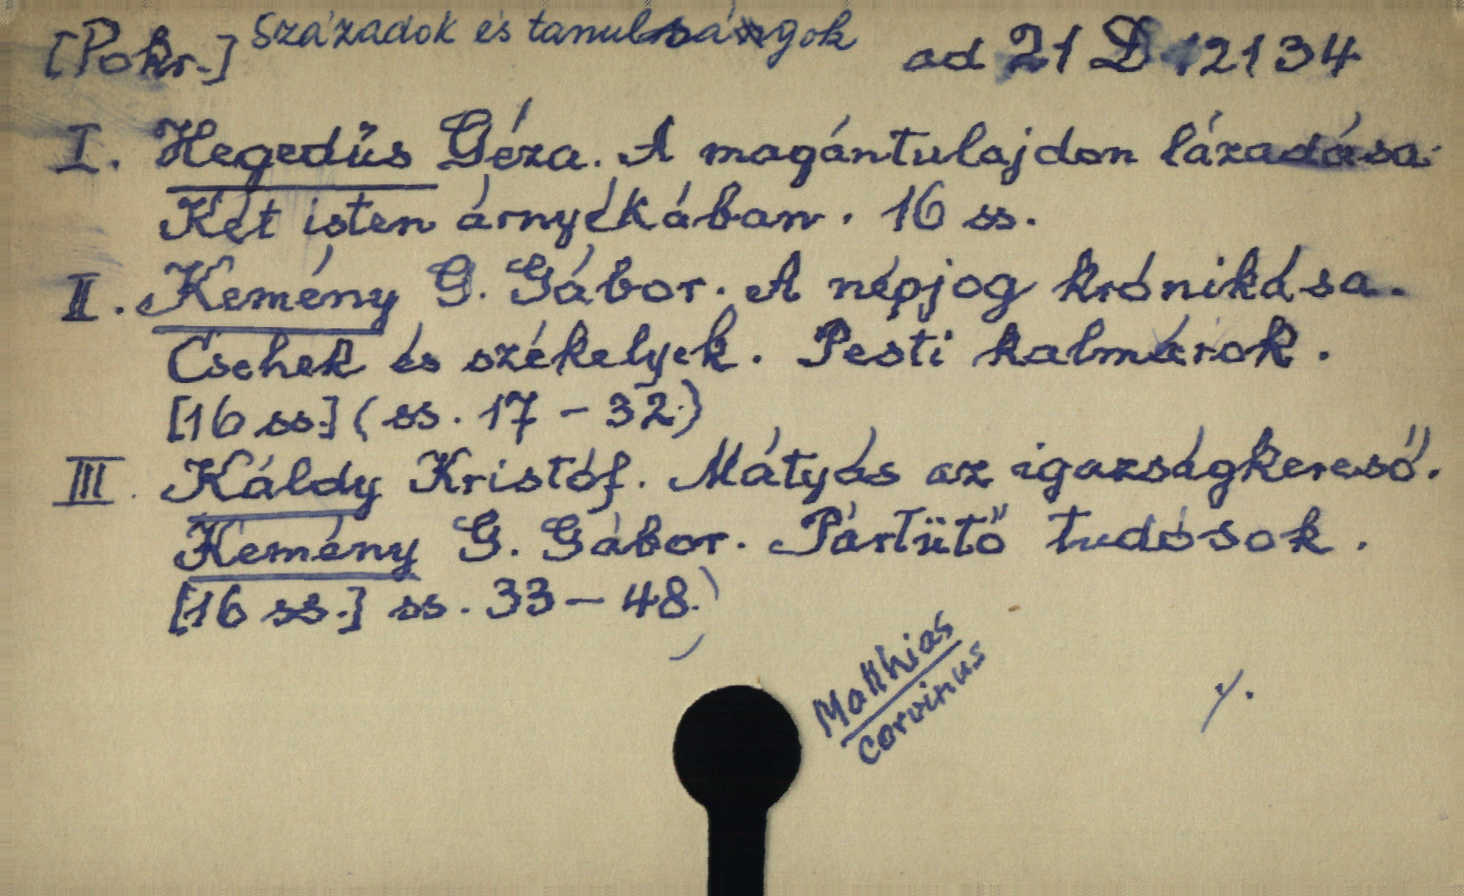 [Pokr.] Századok és tanulságok ad 21 D 12134
I. Hegedűs Géza. A magántulajdon lázadása.
Két isten árnyékában. 16 ss.
II. Kemény G. Gábor. A népjog krónikása.
Csehek és székelyek. Pesti kalmárok.
[16 ss.] (ss. 17 - 32.)
III. Káldy Kristóf. Mátyás az igazságkereső.
Kemény G. Gábor. Pártütő tudósok.
[16 ss.] ss. 33 - 48.)
Matthias
Corvinus
./.